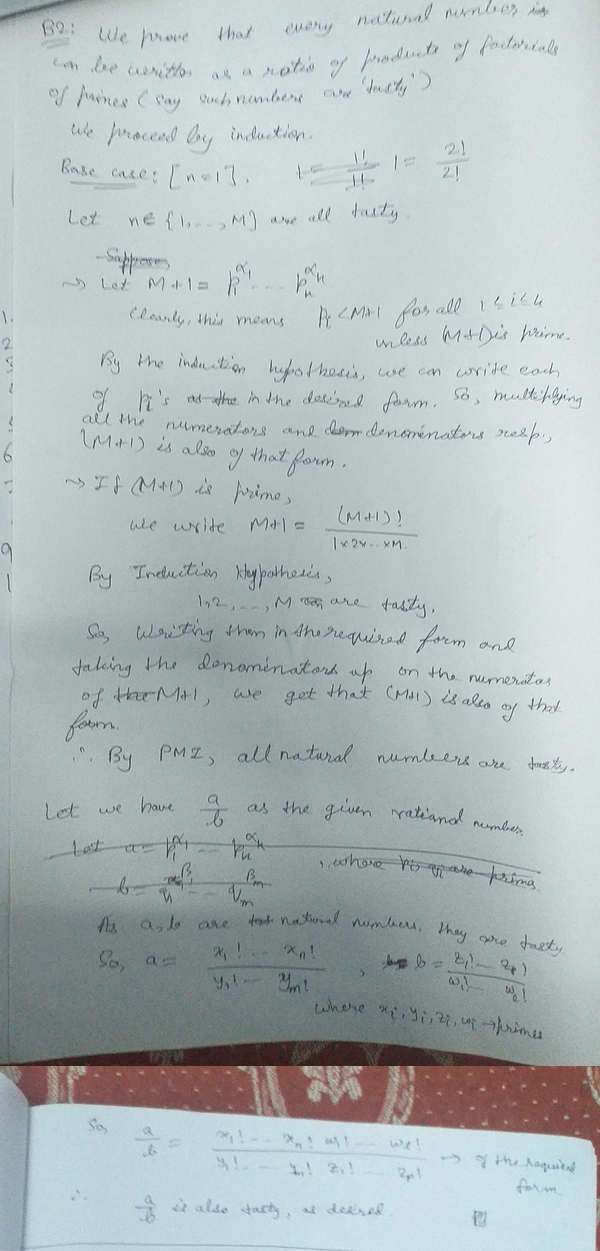 B2: We prove that every natural number is
can be written as a ratio of products of factorials
of primes (say such numbers are 'tasty')
We proceed by induction.
Base case: [n=1]. 1 = 1!/1! 1 = 2!/2!
Let n∈{1,...,M} are all tasty.
Suppose
~> Let M+1 = p₁^α₁ ... pₖ^αₖ
Clearly, this means pᵢ < M+1 for all 1≤i≤k
unless (M+1) is prime.
By the induction hypothesis, we can write each
of pᵢ's as the in the desired form. So, multiplying
all the numerators and dem denominators resp.,
(M+1) is also of that form.
~> If (M+1) is prime,
We write M+1 = (M+1)! / 1×2×...×M.
By Induction Hypothesis,
1,2,...,M are tasty.
So, Writing them in the required form and
taking the denominators up on the numerator
of the M+1, we get that (M+1) is also of that
form.
∴ By PMI, all natural numbers are tasty.
Let we have a/b as the given rational number.
Let a = p₁^α₁ ... pₖ^αₖ
, where pᵢ qᵢ are primes
b = q₁^β₁ ... qₘ^βₘ
As a,b are natural numbers, they are tasty
So, a = x₁!...xₙ! / y₁!...yₘ! , b = z₁!...zₚ! / w₁!...wₑ!
where xᵢ, yᵢ, zᵢ, wᵢ → primes
So, a/b = x₁!...xₙ! w₁!...wₑ! / y₁!...yₘ! z₁!...zₚ! → of the required
form
∴ a/b is also tasty, as desired.